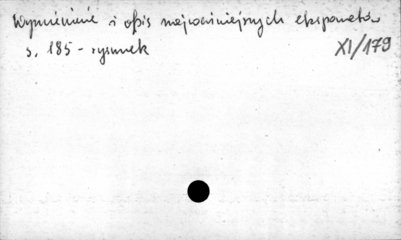 Wymienienie i opis najważniejszych eksponatów
s. 185 - rysunek XI/179